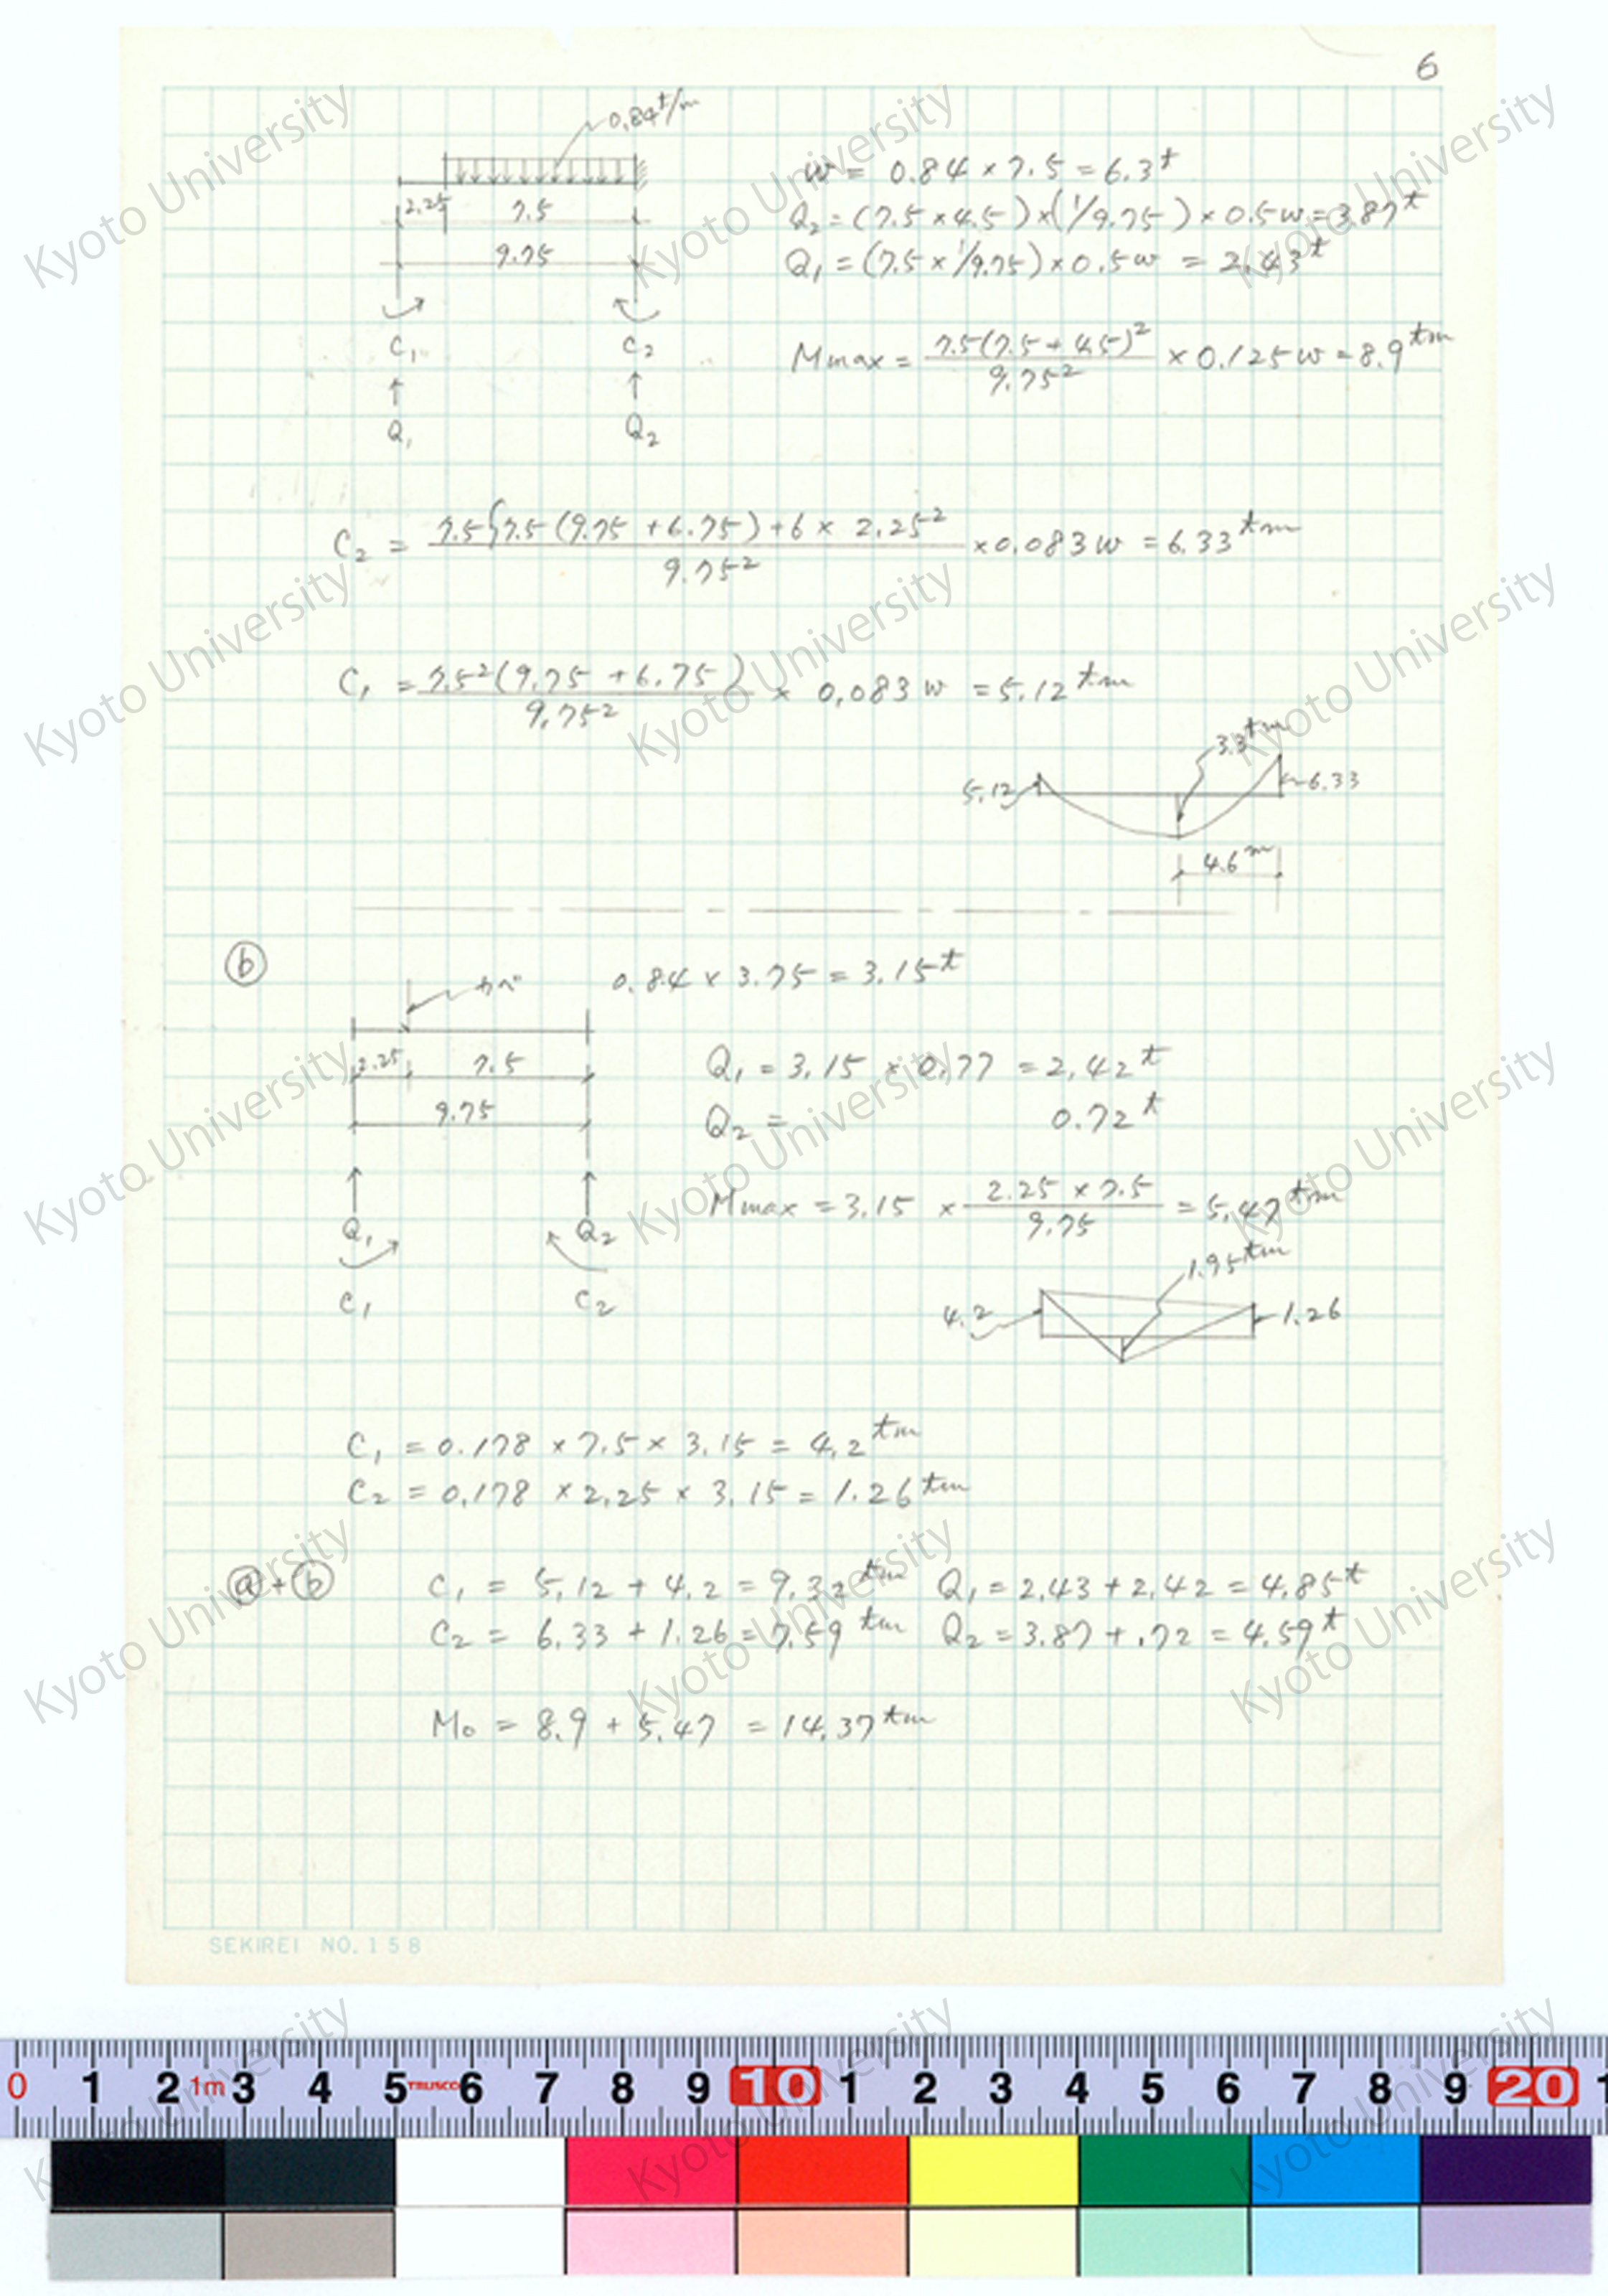 6
0.84t/m
2.25 7.5
9.75
C1 C2
Q1 Q2
W = 0.84 × 7.5 = 6.3t
Q2 = (7.5 × 4.5) × (1/9.75) × 0.5w = 3.87t
Q1 = (7.5 × 1/9.75) × 0.5w = 2.43t
Mmax = 7.5(7.5 + 4.5)² / 9.75² × 0.125w = 8.9tm
C2 = 7.5{7.5 (9.75 + 6.75) + 6 × 2.25² / 9.75² × 0.083w = 6.33tm
C1 = 7.5² (9.75 + 6.75) / 9.75² × 0.083w = 5.12tm
3.3tm
5.12 6.33
4.6m
ⓑ
かべ
0.84 × 3.75 = 3.15t
2.25 7.5
9.75
Q1 Q2
C1 C2
Q1 = 3.15 × 0.77 = 2.42t
Q2 = 0.72t
Mmax = 3.15 × 2.25 × 7.5 / 9.75 = 5.47tm
1.95tm
4.2 1.26
C1 = 0.178 × 7.5 × 3.15 = 4.2tm
C2 = 0.178 × 2.25 × 3.15 = 1.26tm
ⓐ+ⓑ C1 = 5.12 + 4.2 = 9.32tm Q1 = 2.43 + 2.42 = 4.85t
C2 = 6.33 + 1.26 = 7.59tm Q2 = 3.87 + .72 = 4.59t
M0 = 8.9 + 5.47 = 14.37tm
SEKIREI NO.158
0 1 2 1m 3 4 5 TRUSCO 6 7 8 9 10 1 2 3 4 5 6 7 8 9 20 1
Kyoto University